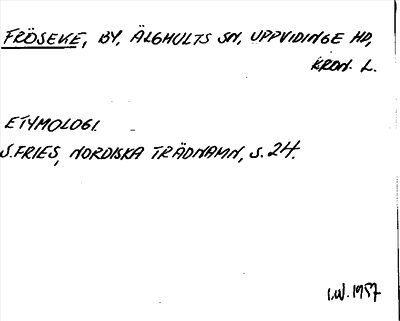 FRÖSEKE, BY, ÄLGHULTS SN, UPPVIDINGE HD,
KRON. L.
ETYMOLOGI.
S. FRIES, NORDISKA TRÄDNAMN, S. 24.
I.W. 1957